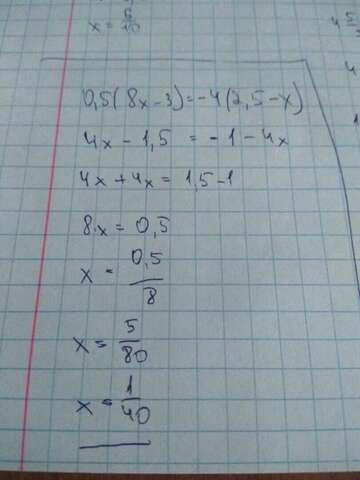 x = 5/10
0,5(8x-3)=-4(2,5-x)
4x-1,5 = -1-4x
4x+4x = 1,5-1
8x = 0,5
x = 0,5/8
x = 5/80
x = 1/40